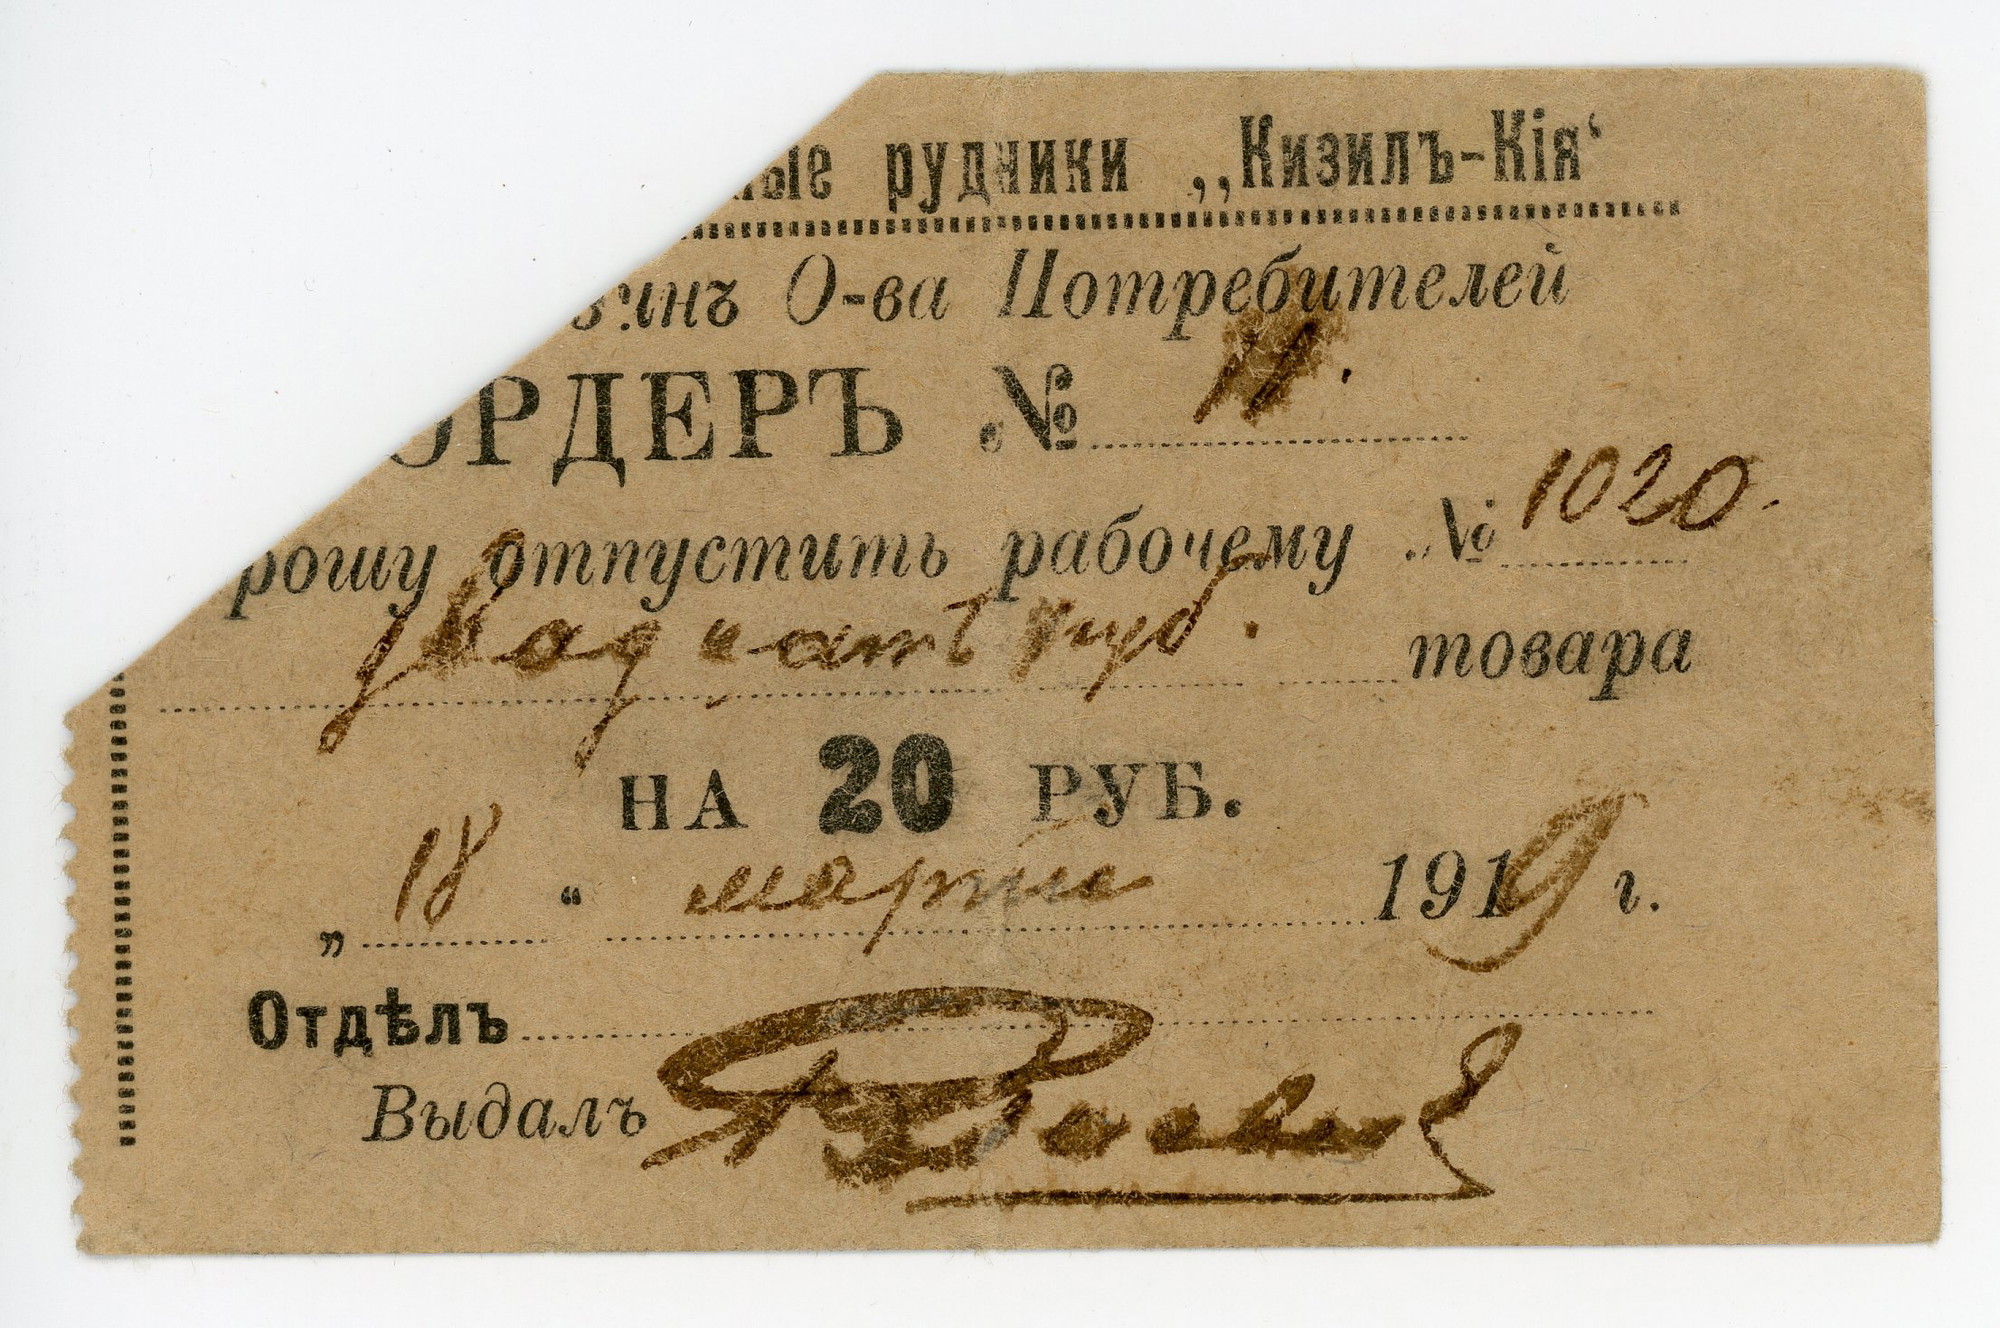 ные рудники „Кизилъ-Кія“
зинъ О-ва Потребителей
ОРДЕРЪ №
рошу отпустить рабочему № 1020.
двадцать руб. товара
НА 20 РУБ.
„18“ марта 1919 г.
Отдѣлъ
Выдалъ